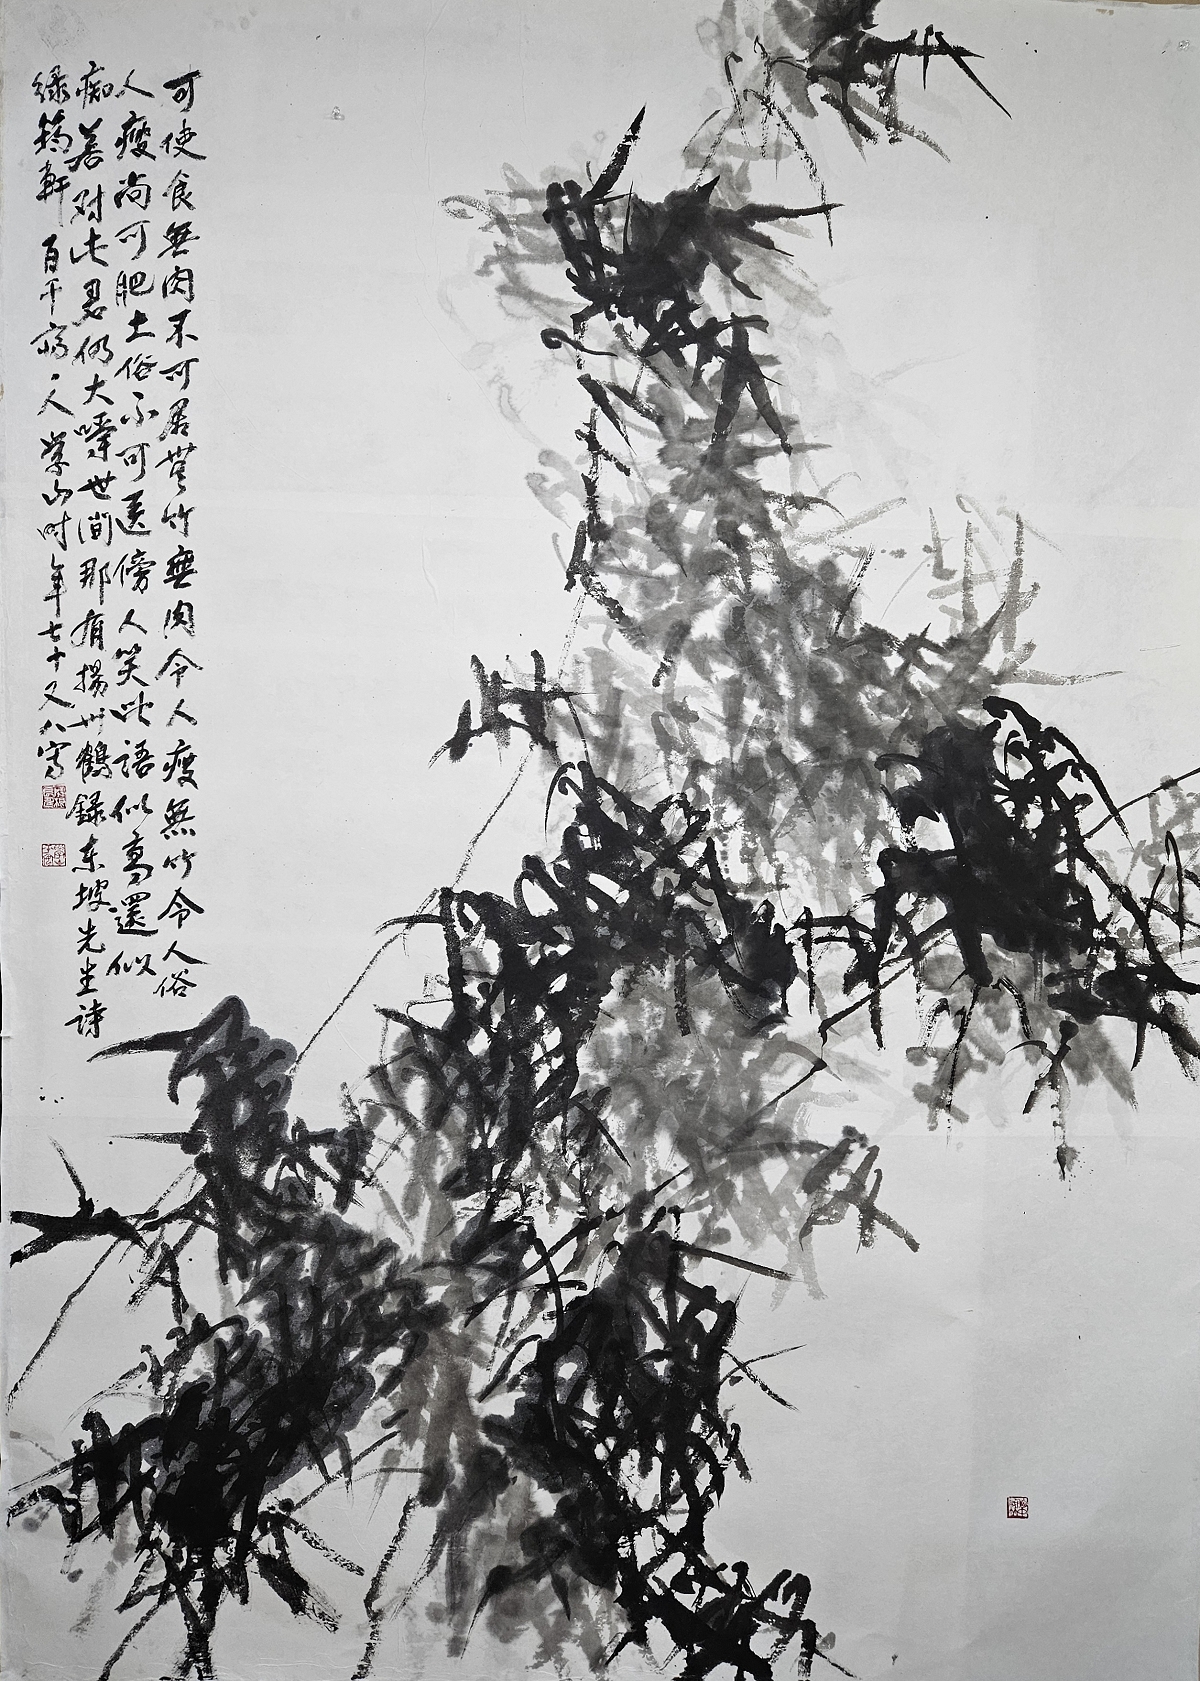 可使食無肉不可居無竹無肉令人瘦無竹令人俗
人瘦尚可肥士俗不可医傍人笑此語似高還似
痴若对此君仍大嚼世间那有揚州鶴録東坡先生詩
緑筠軒百千病人 山时年七十又八写